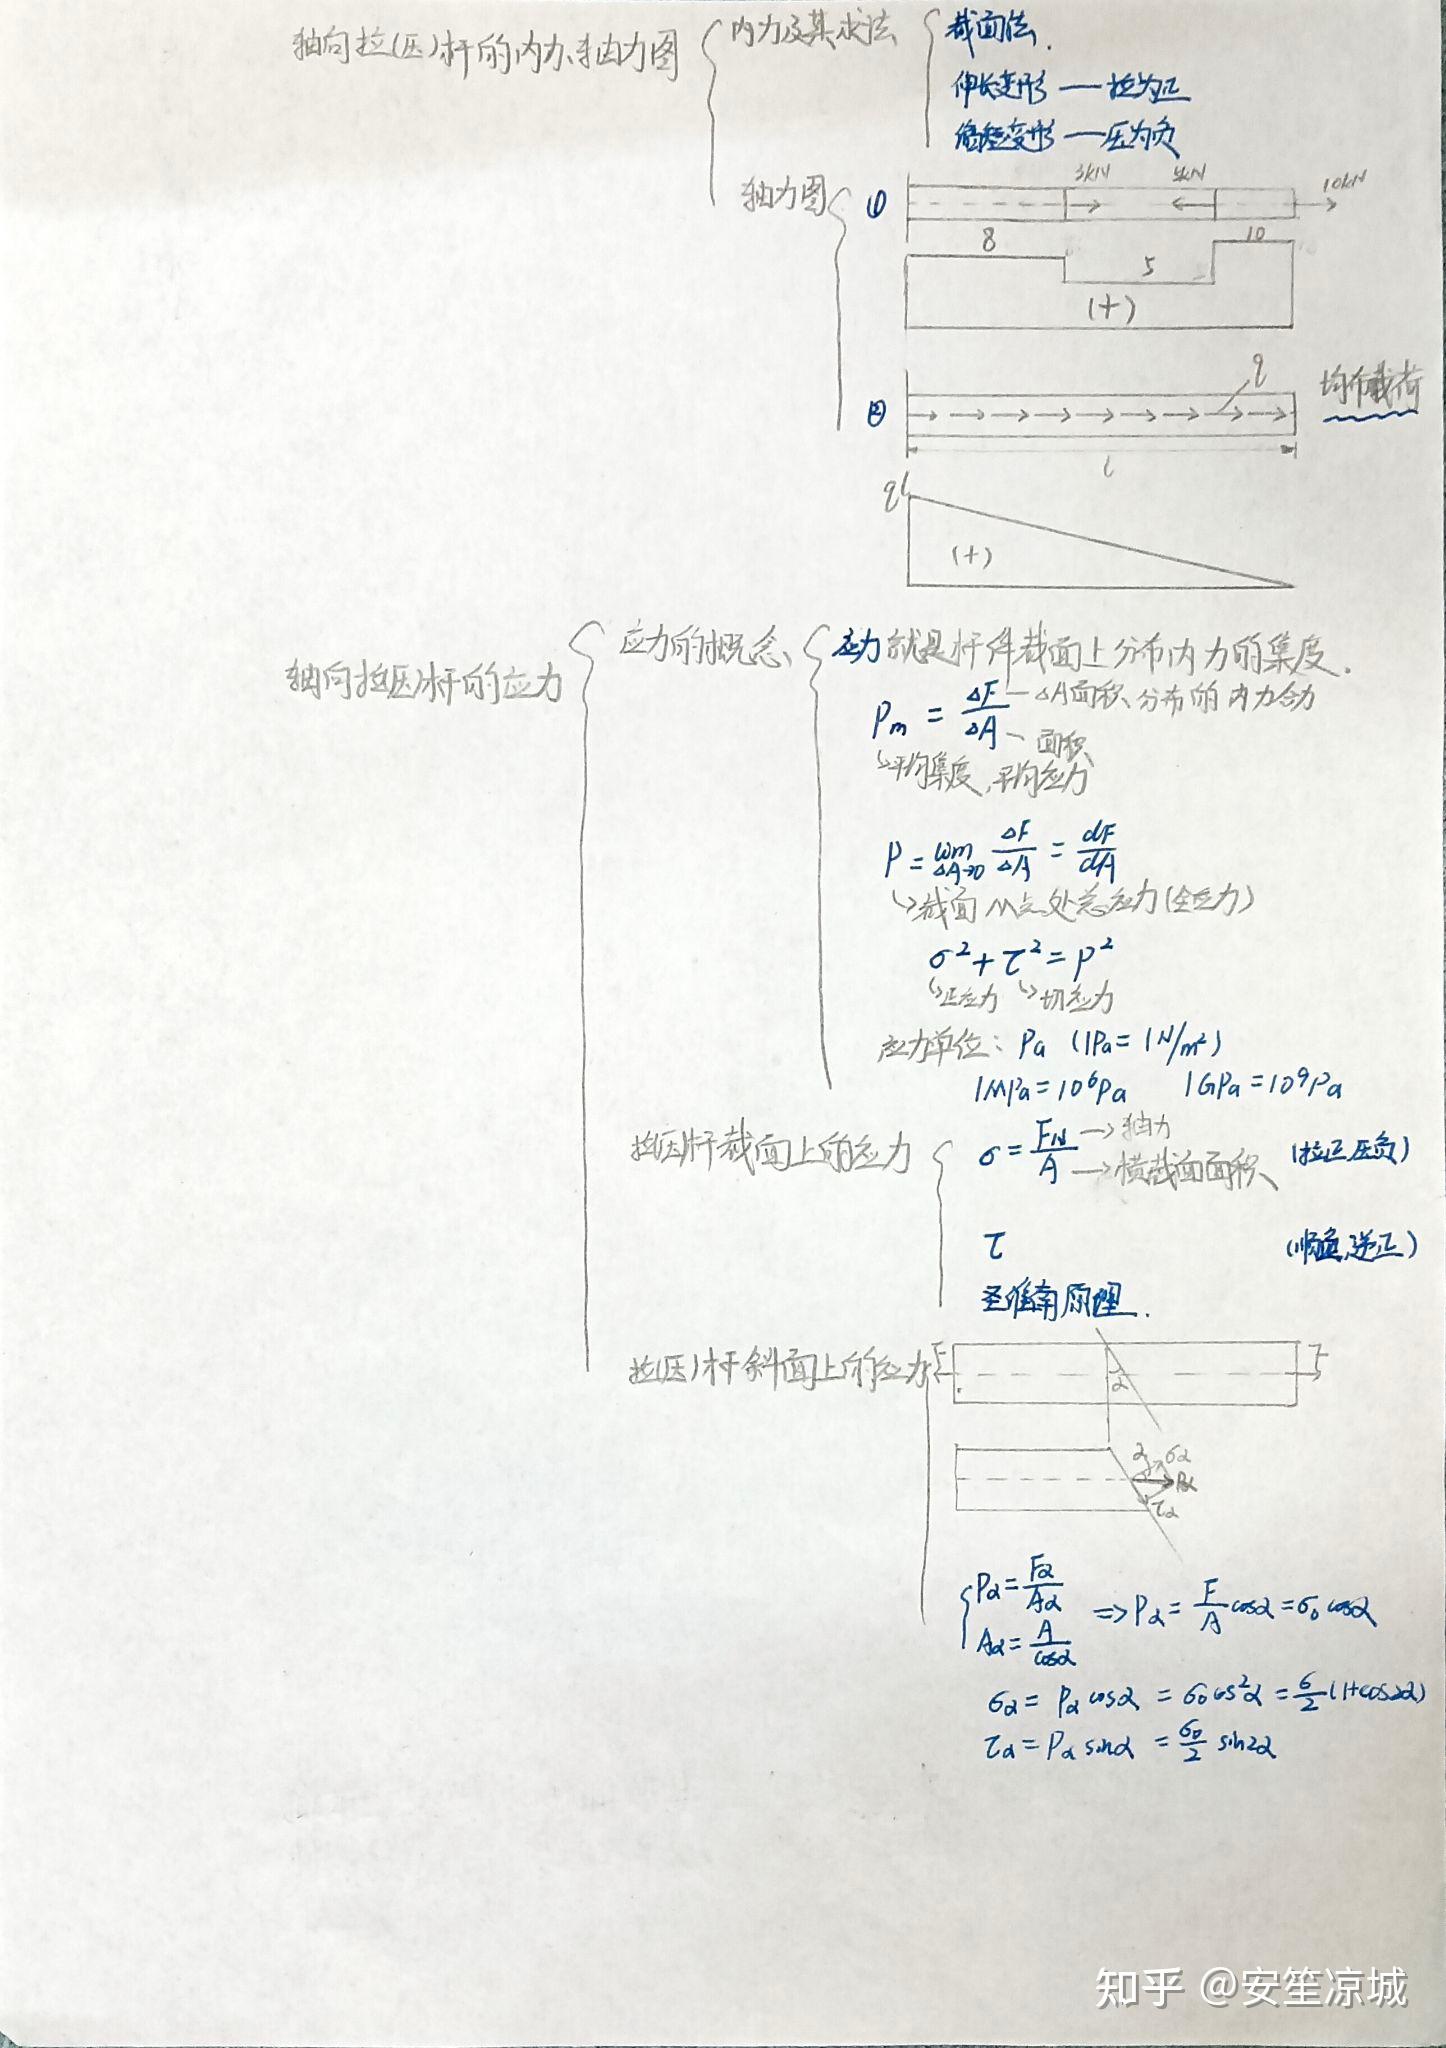 轴向拉(压)杆的内力、轴力图
内力及其求法
截面法.
伸长变形 — 拉为正
缩短变形 — 压为负
轴力图
①
3kN
10kN
8
5
10
(+)
②
q
均布载荷
l
ql
(+)
轴向拉(压)杆的应力
应力的概念、
应力就是杆件截面上分布内力的集度.
Pm = ΔF/ΔA
ΔA面积、分布的内力合力
面积
平均集度,平均应力
P = lim ΔA→0 ΔF/ΔA = dF/dA
截面M点处总应力(全应力)
σ² + τ² = p²
正应力 切应力
应力单位: Pa (1Pa = 1N/m²)
1MPa = 10⁶Pa 1GPa = 10⁹Pa
拉(压)杆截面上的应力
σ = FN/A
→轴力
→横截面面积
(拉正压负)
τ (顺负,逆正)
圣维南原理.
拉(压)杆斜面上的应力
F
F
α
α σα
Pα
τα
Pα = Fα/Aα
Aα = A/cosα
⇒ Pα = F/A cosα = σ₀ cosα
σα = Pα cosα = σ₀cos²α = σ/2 (1+cos2α)
τα = Pα sinα = σ₀/2 sin2α
知乎 @安笙凉城